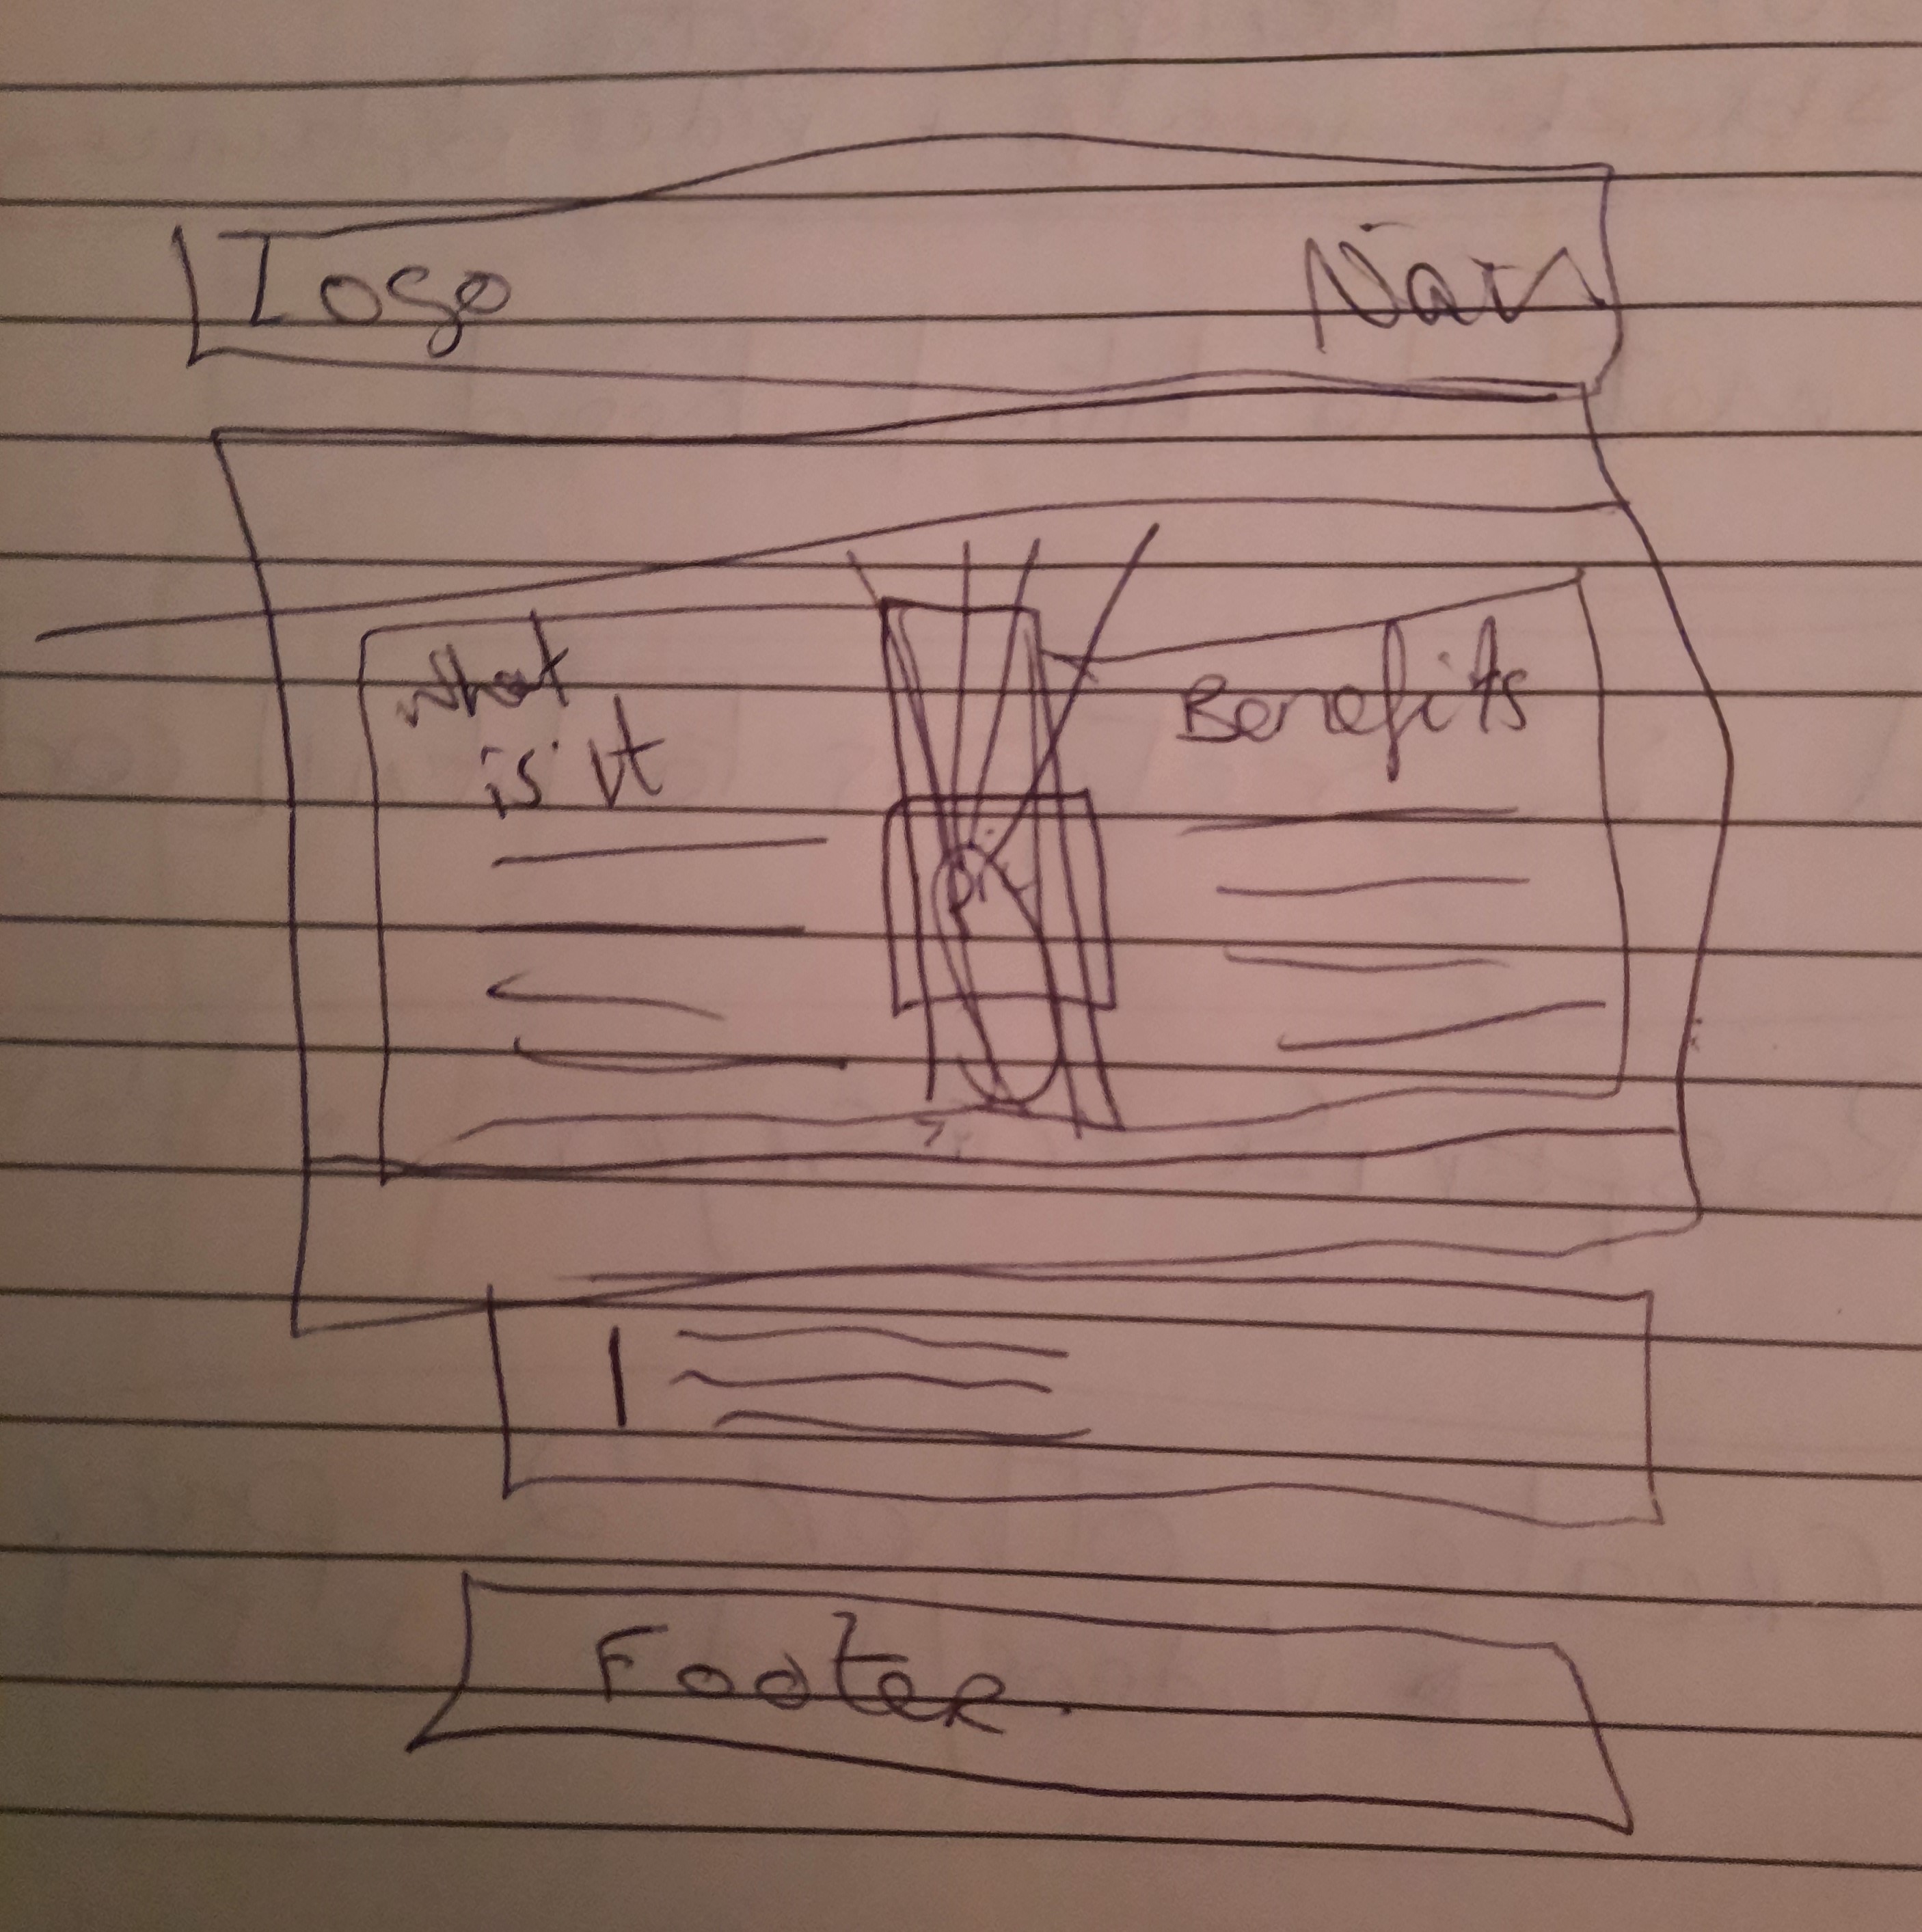 Logo
Nav
What
is it
Benefits
1
Footer.